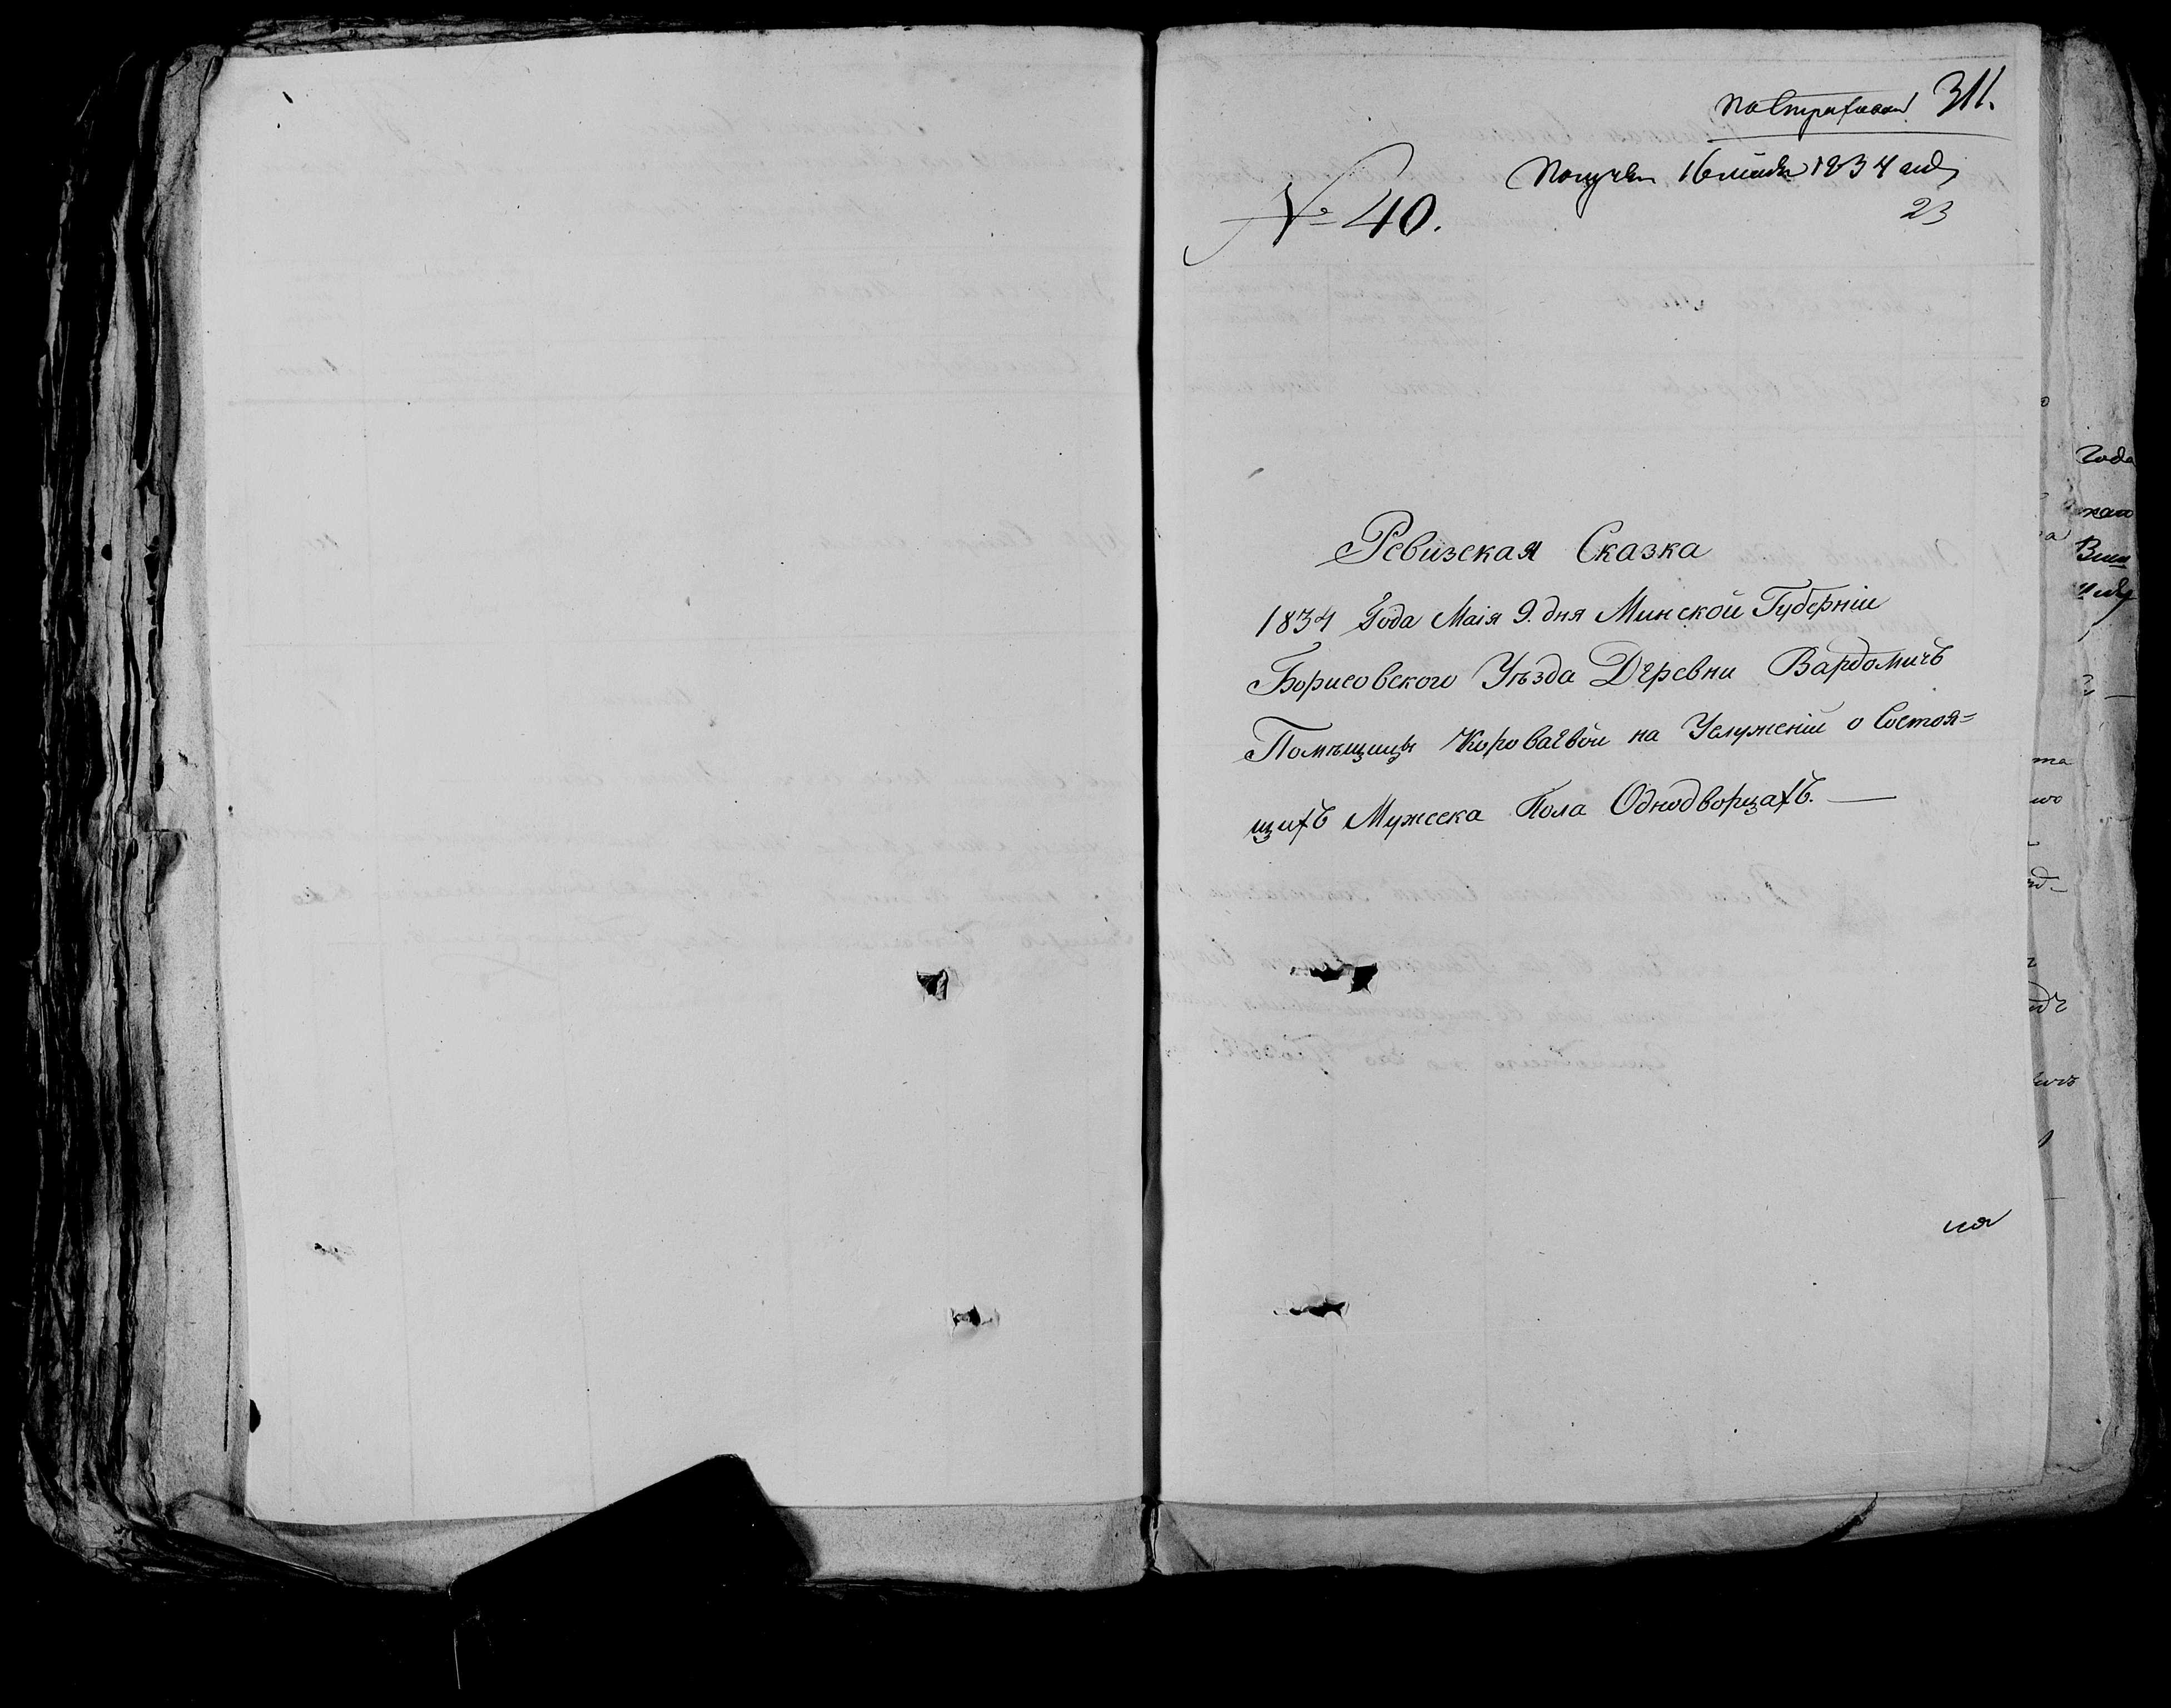 311.
№ 40.
Получен 16 маія 1834 года
23
Ревизская Сказка
1834 Года Маія 9. дня Минской Губерніи
Борисовского Уѣзда Деревни Вардомичъ
Помѣщицы Короваевой на Услуженіи о Состоя=
щихъ Мужеска Пола Однодворцахъ. —